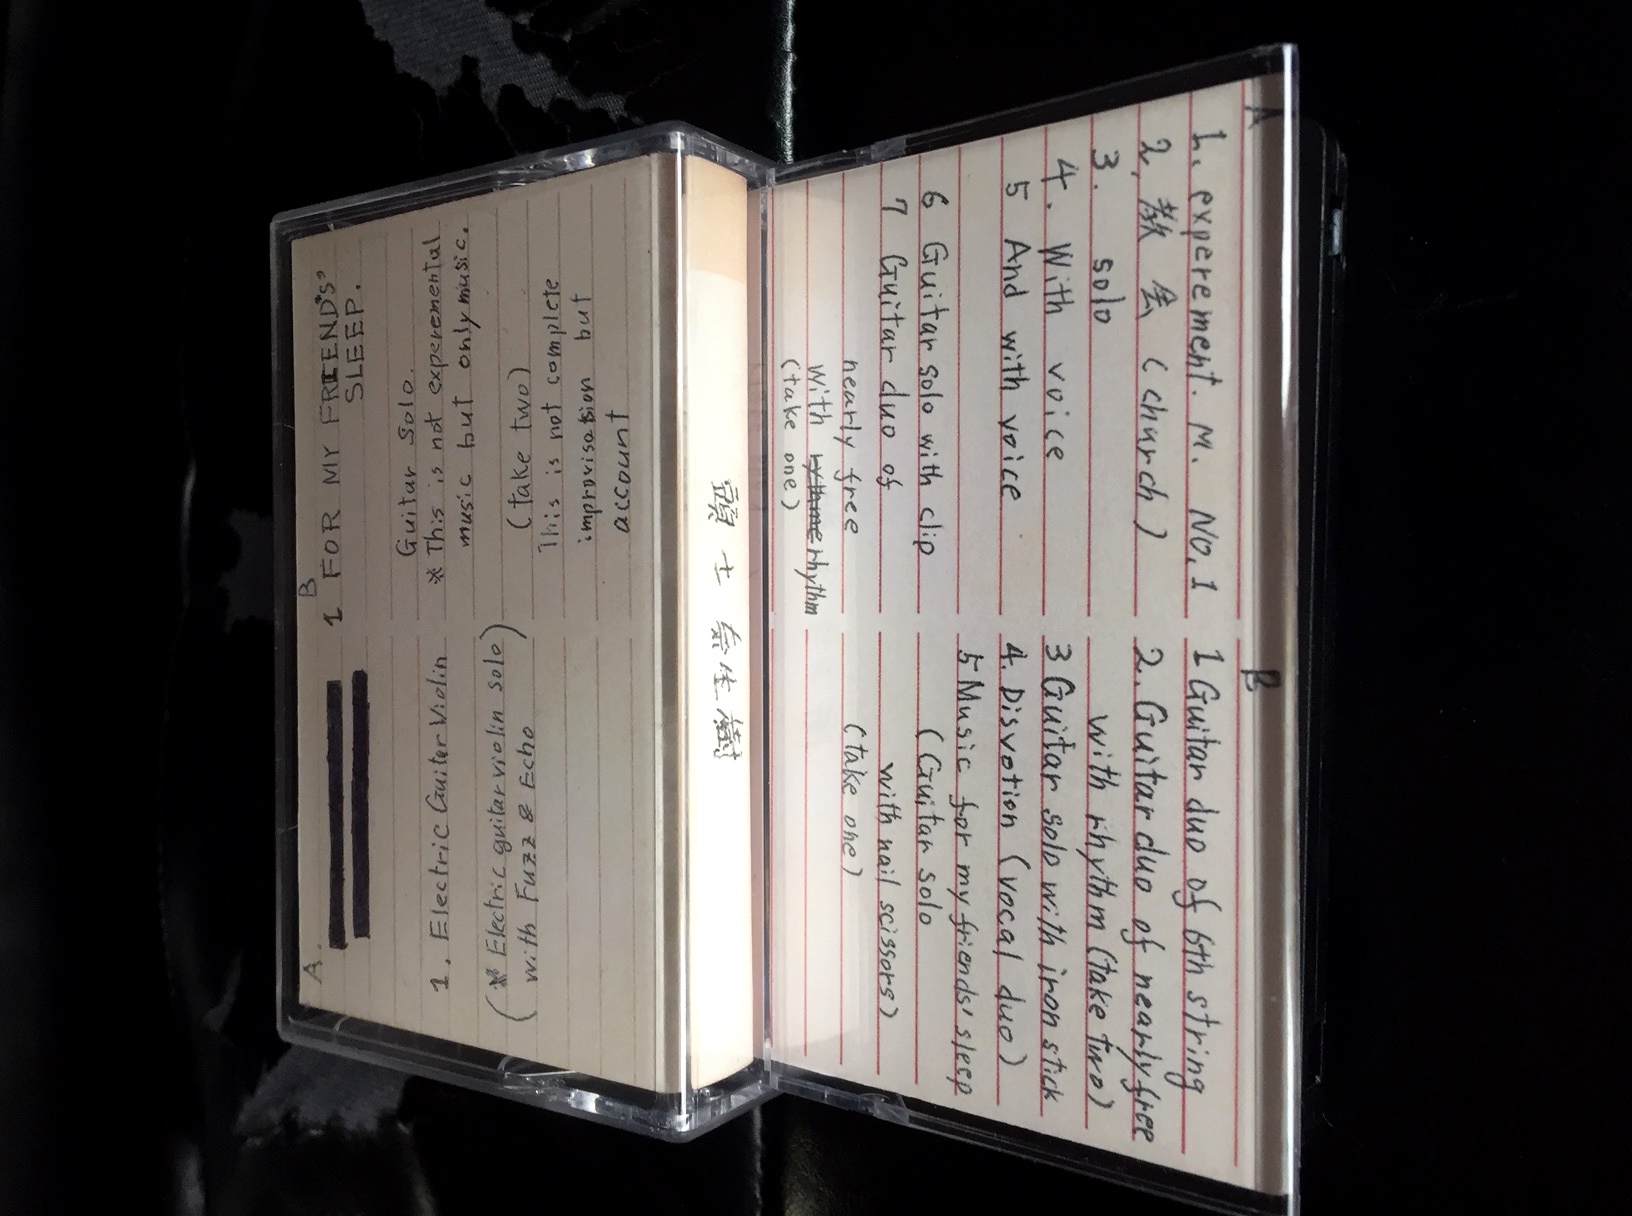 A
1. experement. M. NO.1
2, 教会 (church)
3. solo
4. With voice
5 And with voice
6 Guitar solo with clip
7 Guitar duo of
nearly free
with rythme rhythm
(take one)
B
1 Guitar duo of 6th string
2. Guitar duo of nearly free
with rhythm (take two)
3 Guitar solo with iron stick
4. Disvotion (vocal duo)
5 Music for my friends' sleep
(Guitar solo
with nail scissors)
(take one)
頭士奈生樹
B
1 FOR MY FRIEND'S"
SLEEP.
Guitar Solo.
* This is not experemental
music but only music.
(take two)
This is not complete
improvisation but
account
A.
1, Electric Guitar Violin
(* Electric guitar violin solo)
with Fuzz & Echo